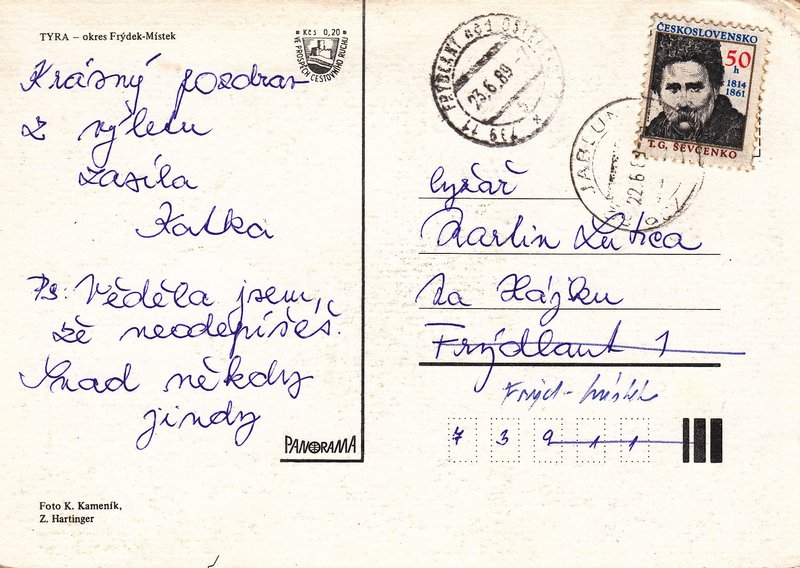 TYRA – okres Frýdek-Místek
Kčs 0,20
VE PROSPĚCH CESTOVNÍHO RUCHU
Krásný pozdrav
z výletu
zasílá
Katka
Ps: Věděla jsem,
že neodepíšeš.
Snad někdy
jindy
PANORAMA
Foto K. Kameník,
Z. Hartinger
FRÝDLANT nad OSTRAVICÍ
23.6.89
739 11
ČESKOSLOVENSKO
50
h
1814
1861
T.G. ŠEVČENKO
22.6.89
lyžař
Martin
Na Hájku
Frýdlant 1
Frýd-Místek
7 3 9 1 1